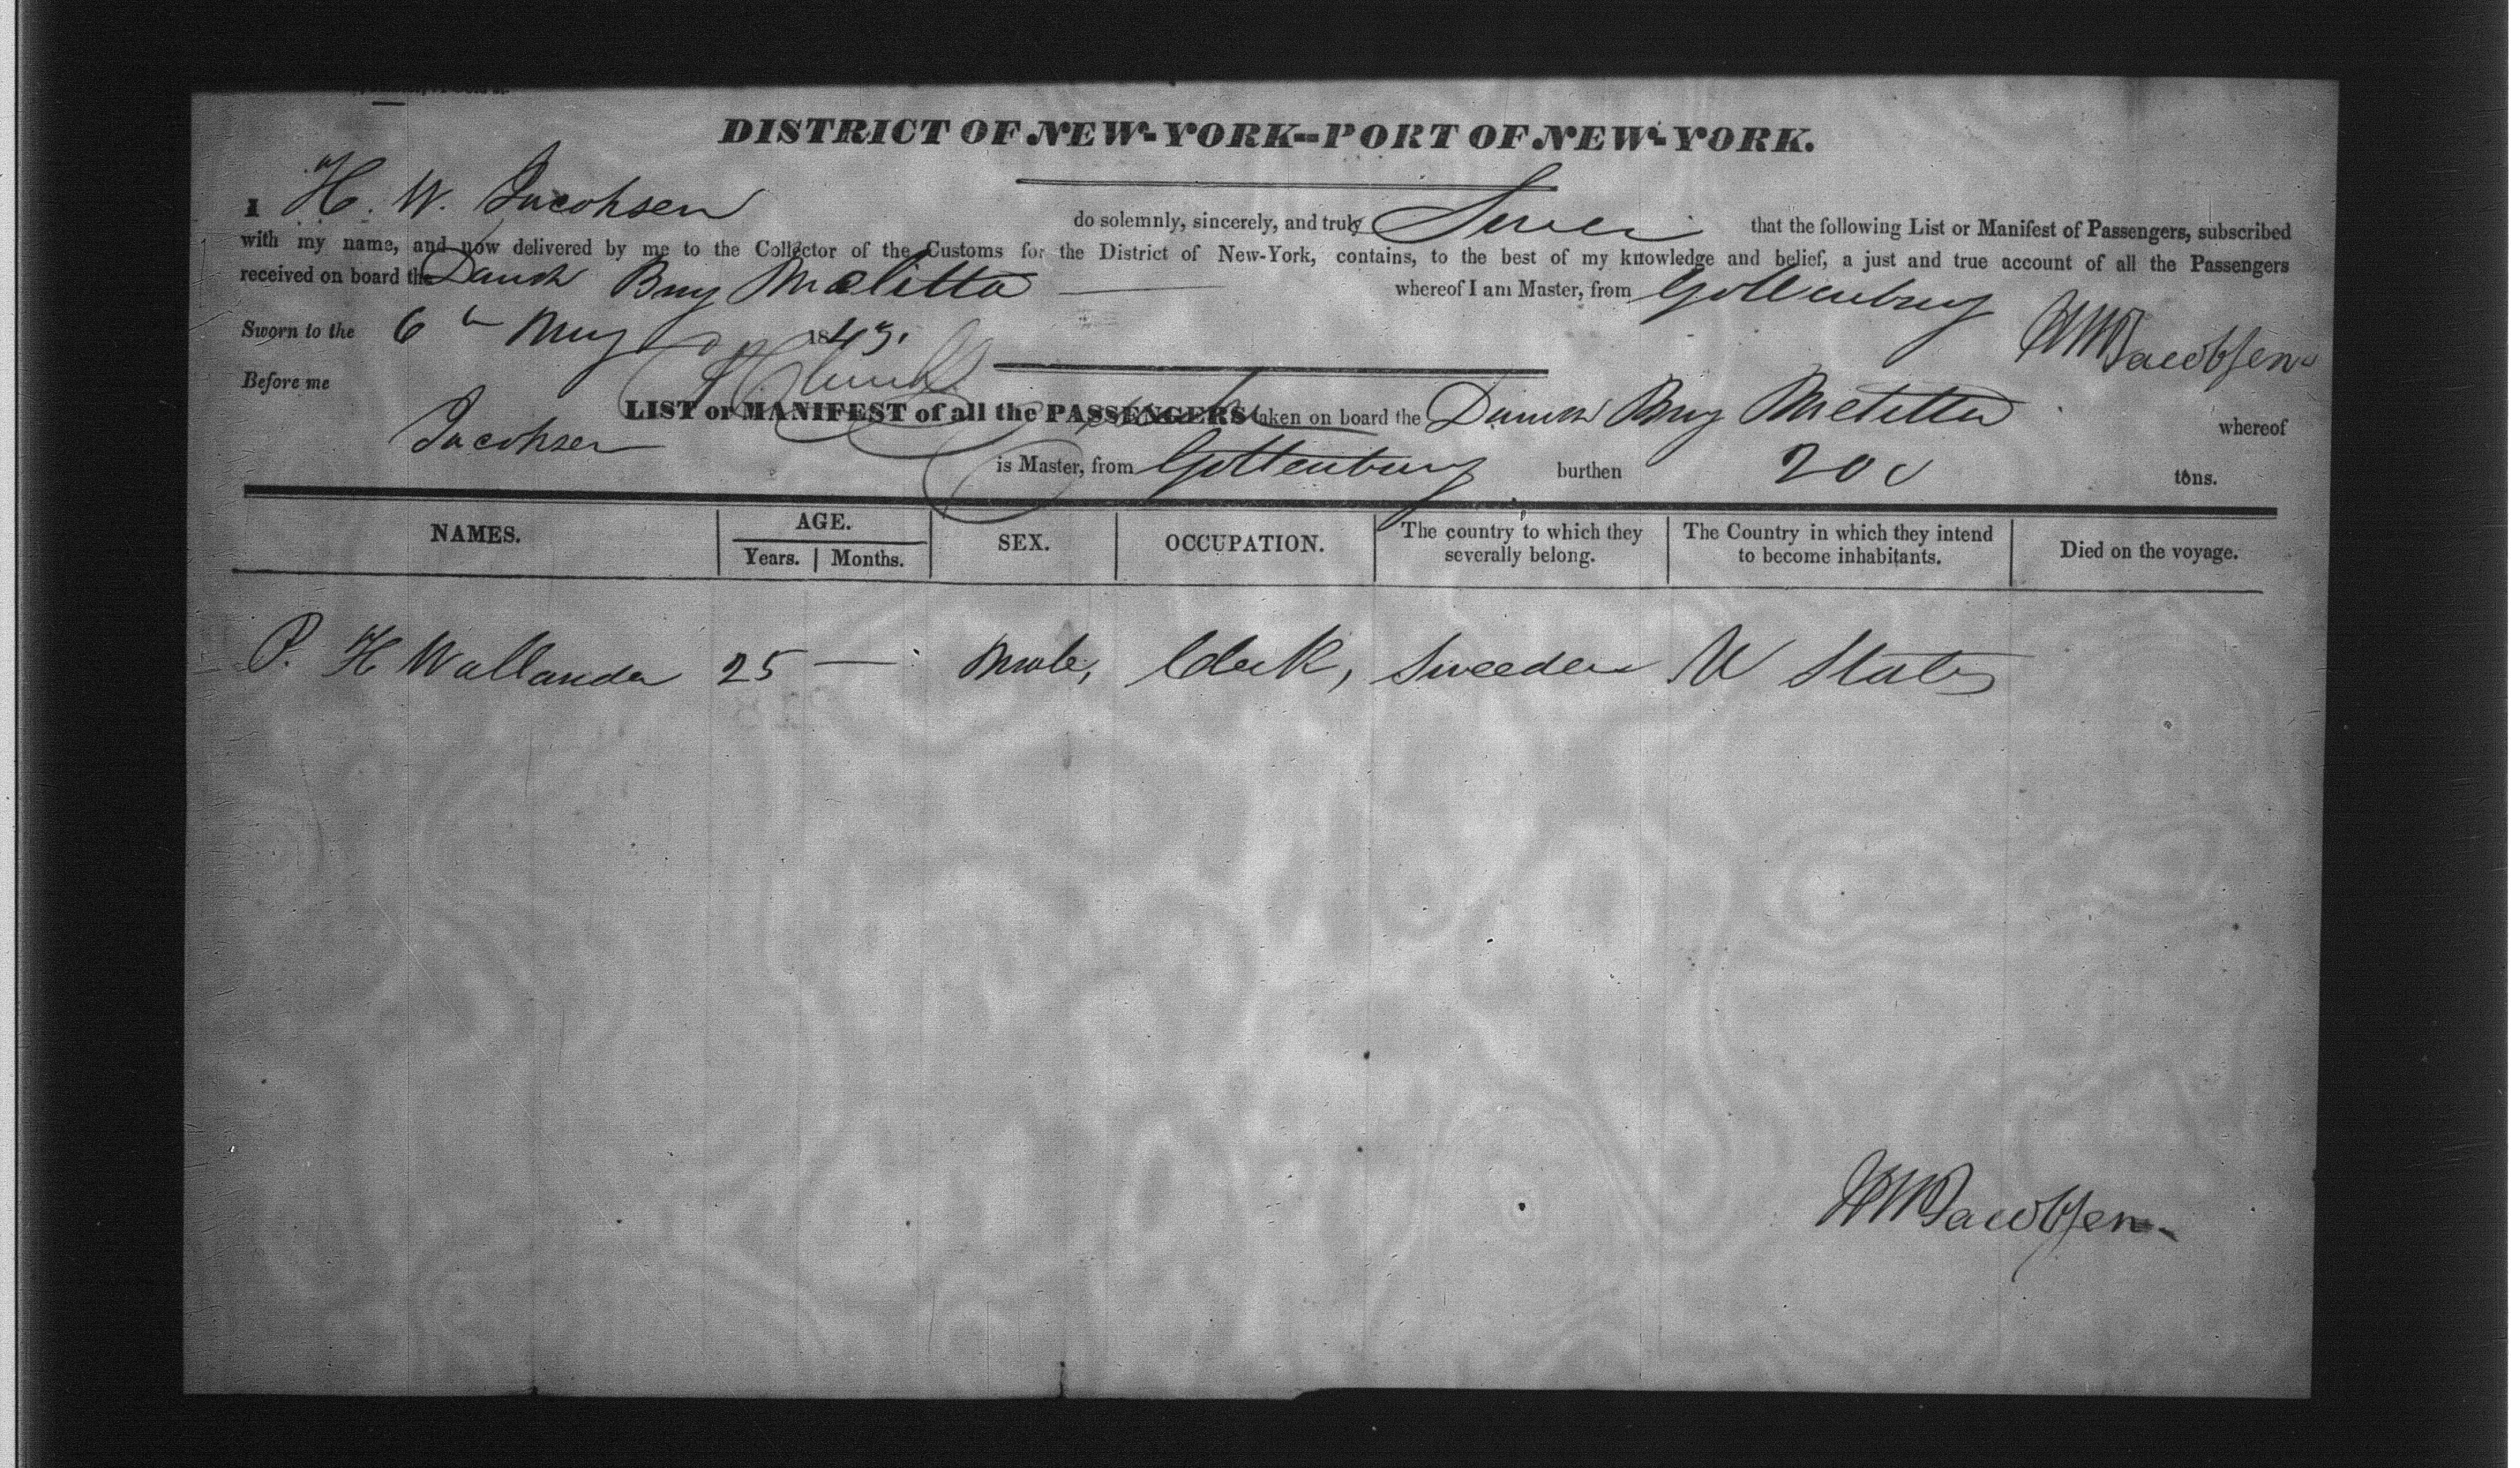 DISTRICT OF NEW-YORK--PORT OF NEW-YORK.
I H. W. Jacobsen do solemnly, sincerely, and truly Swear that the following List or Manifest of Passengers, subscribed
with my name, and now delivered by me to the Collector of the Customs for the District of New-York, contains, to the best of my knowledge and belief, a just and true account of all the Passengers
received on board the Danish Brig Melitta whereof I am Master, from Gottenburg
Sworn to the 6th May 1843. HWJacobsen
Before me
LIST or MANIFEST of all the PASSENGERS taken on board the Danish Brig Melitta whereof
Jacobsen is Master, from Gottenburg burthen 200 tons.
NAMES. AGE. SEX. OCCUPATION. The country to which they severally belong. The Country in which they intend to become inhabitants. Died on the voyage.
Years. Months.
P. H Wallanda 25 — Male, Clerk, Sweeden U States
HWJacobsen